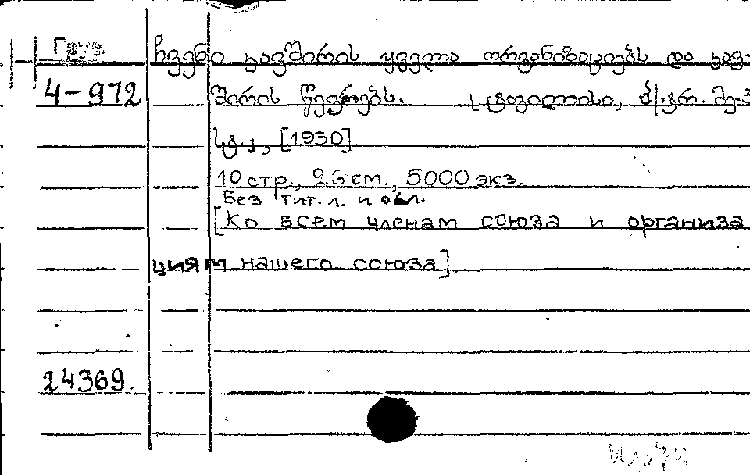 Груз. ჩვენი კავშირის ყველა ორგანიზაციებს და კავ-
4-972 შირის წევრებს. ტფილისი,
[1930]
10 стр., 23 см., 5000 экз.
Без тит. л. и обл.
[Ко всем членам союза и организа
циям нашего союза]
24369.